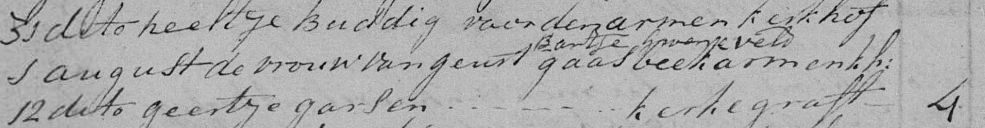 31 dito heeltje Buddig voor den armen kerkhof
Bartje Gwerkveld
5 august de vrouw van geurt gaasbeek armenkh:
12 dito geertje garsen ... kerkegraft 4